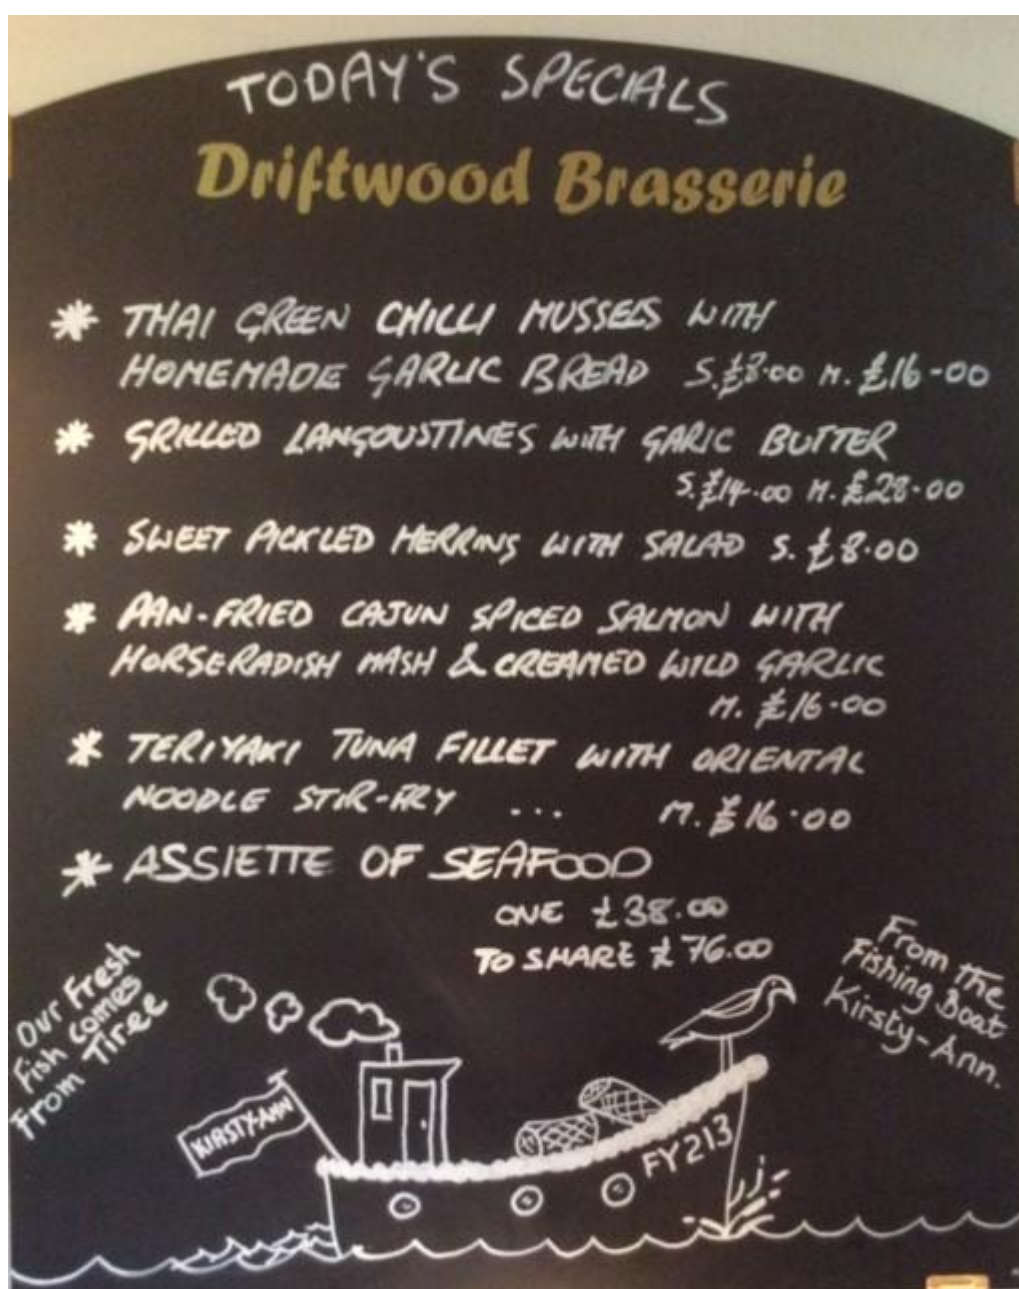 TODAY'S SPECIALS
Driftwood Brasserie
* THAI GREEN CHILLI MUSSELS WITH
HOMEMADE GARLIC BREAD S.£8.00 M. £16-00
* GRILLED LANGOUSTINES WITH GARIC BUTTER
S. £14.00 M. £28.00
* SWEET PICKLED HERRING WITH SALAD S. £8.00
* PAN-FRIED CAJUN SPICED SALMON WITH
HORSERADISH MASH & CREAMED WILD GARLIC
M. £16.00
* TERIYAKI TUNA FILLET WITH ORIENTAL
NOODLE STIR-FRY ... M. £16.00
* ASSIETTE OF SEAFOOD
ONE £38.00
TO SHARE £76.00
Our Fresh
Fish comes
From Tiree
From the
Fishing Boat
Kirsty-Ann.
KIRSTY-ANN
FY213